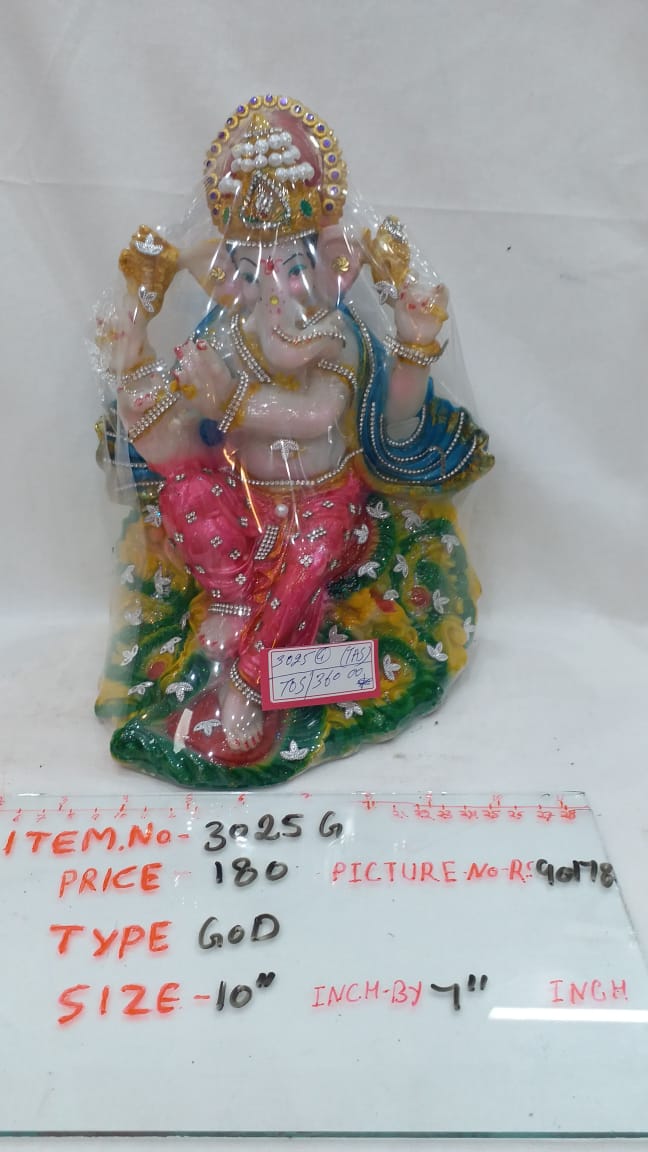 3025 G (TAS)
TOS/360 00
ITEM.No- 3025 G
PRICE 180 PICTURE.No-RS 90178
TYPE GOD
SIZE-10" INCH-BY 7" INCH